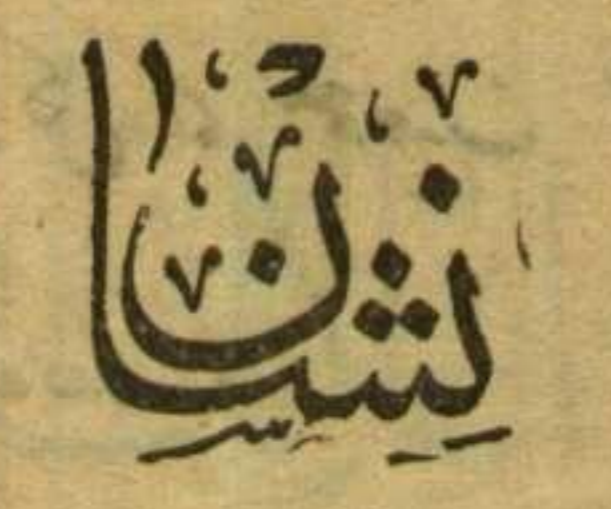 نشان